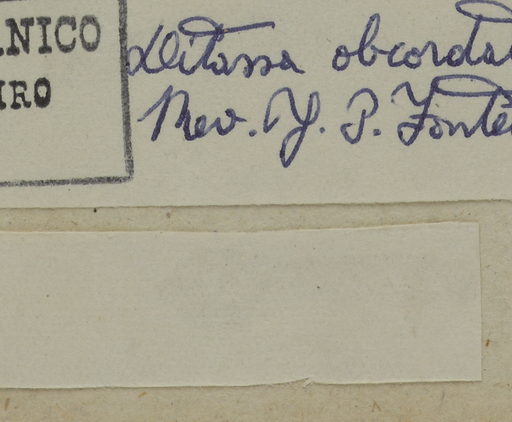 ANICO
IRO
Ditassa obcordat
Rev. J. P. Fontê